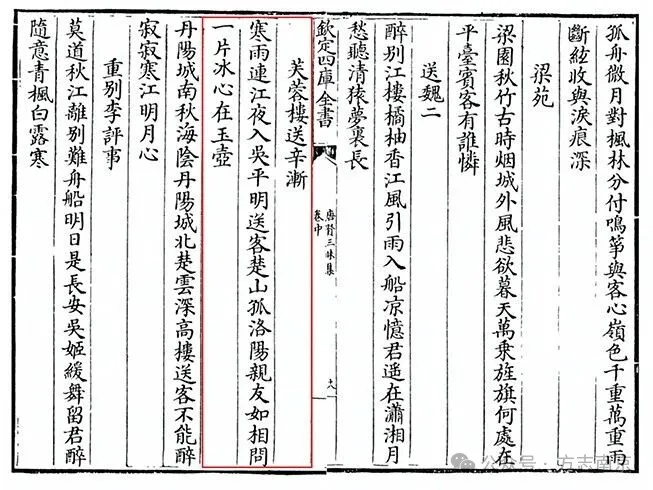 孤舟微月對楓林分付鳴箏與客心嶺色千重萬重雨
斷絃收與淚痕深
梁苑
梁園秋竹古時烟城外風悲欲暮天萬乗旌旗何處在
平臺賓客有誰憐
送魏二
醉別江樓橘柚香江風引雨入船凉憶君遥在瀟湘月
愁聽清猿夢裏長
欽定四庫全書
唐賢三昧集
卷中
芙蓉樓送辛漸
寒雨連江夜入吳平明送客楚山孤洛陽親友如相問
一片冰心在玉壺
丹陽城南秋海陰丹陽城北楚雲深高樓送客不能醉
寂寂寒江明月心
重別李評事
莫道秋江離別難舟船明日是長安吳姬緩舞留君醉
隨意青楓白露寒
公众号 · 方志南京